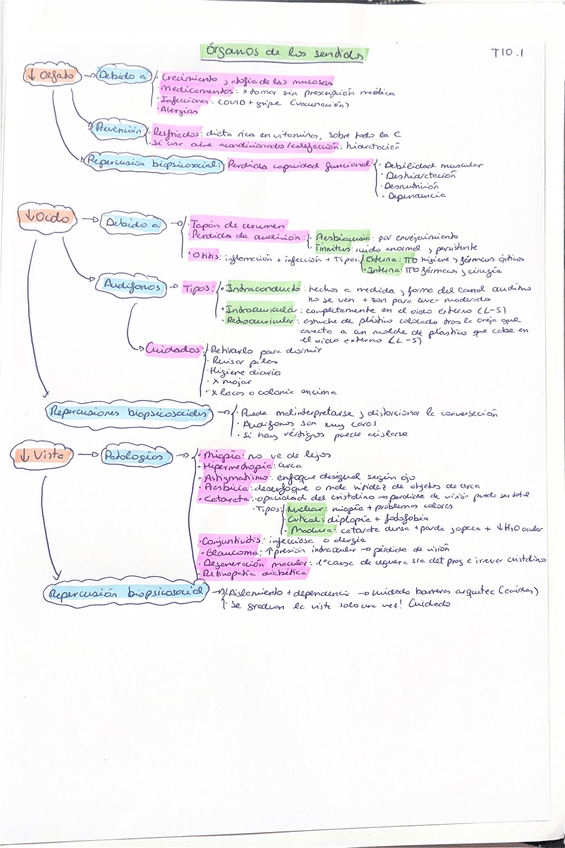 Órganos de los sentidos
T10.1
↓ Olfato → Debido a
· Crecimiento y atrofia de las mucosas
· Medicamentos: x tomar sin prescripción médica
· Infecciones: COVID + gripe (vacunación)
· Alergias
Prevención
· Resfriados: dieta rica en vitaminas, sobre todo la C
· Si use aire acondicionado/calefacción: hidratación
Repercusión biopsicosocial: Perdida capacidad funcional
· Debilidad muscular
· Deshidratación
· Desnutrición
· Dependencia
↓ Oído → Debido a
· Tapón de cerumen
· Perdidas de audición
· Presbiacusia: por envejecimiento
· Tinnitus: ruido anormal y persistente
· Otitis: inflamación + infección + Tipos
· Externa: TTO higiene y fármacos ópticos
· Interna: TTO fármacos y cirugía
Audífonos → Tipos:
· Intraconducto: hechos a medida y forma del canal auditivo
no se ven + son para leve-moderada
· Intraauricular: completamente en el oído externo (L-S)
· Retroauricular: estuche de plástico colocado tras la oreja que
conecta a un molde de plástico que cabe en
el oído externo (L-S)
Cuidados
· Retirarlo para dormir
· Revisar pilas
· Higiene diaria
· X mojar
· X lacas o colonia encima
Repercusiones biopsicosociales →
· Puede malinterpretarse y distorsionar la conversación
· Audífonos son muy caros
· Si hay vértigos puede aislarse
↓ Vista → Patologías →
· Miopía: no ve de lejos
· Hipermetropía: cerca
· Astigmatismo: enfoque desigual según ojo
· Presbicia: desenfoque o mala nitidez de objetos de cerca
· Catarata: opacidad del cristalino → perdida de visión puede ser total
· Tipos
· Nuclear: miopía + problemas colores
· Cortical: diplopía + fotofobia
· Madura: catarata densa + parda y opaca + ↓ H2O ocular
· Conjuntivitis: infecciosa o alergia
· Glaucoma: ↑ presión intraocular → pérdida de visión
· Degeneración macular: 1ª causa de ceguera s/a det prog e irrever cristalino
· Retinopatía diabética
Repercusión biopsicosocial →
· Aislamiento + dependencia → cuidado barreras arquitec (caídas)
· Se gradúan la vista solo una vez! Cuidado